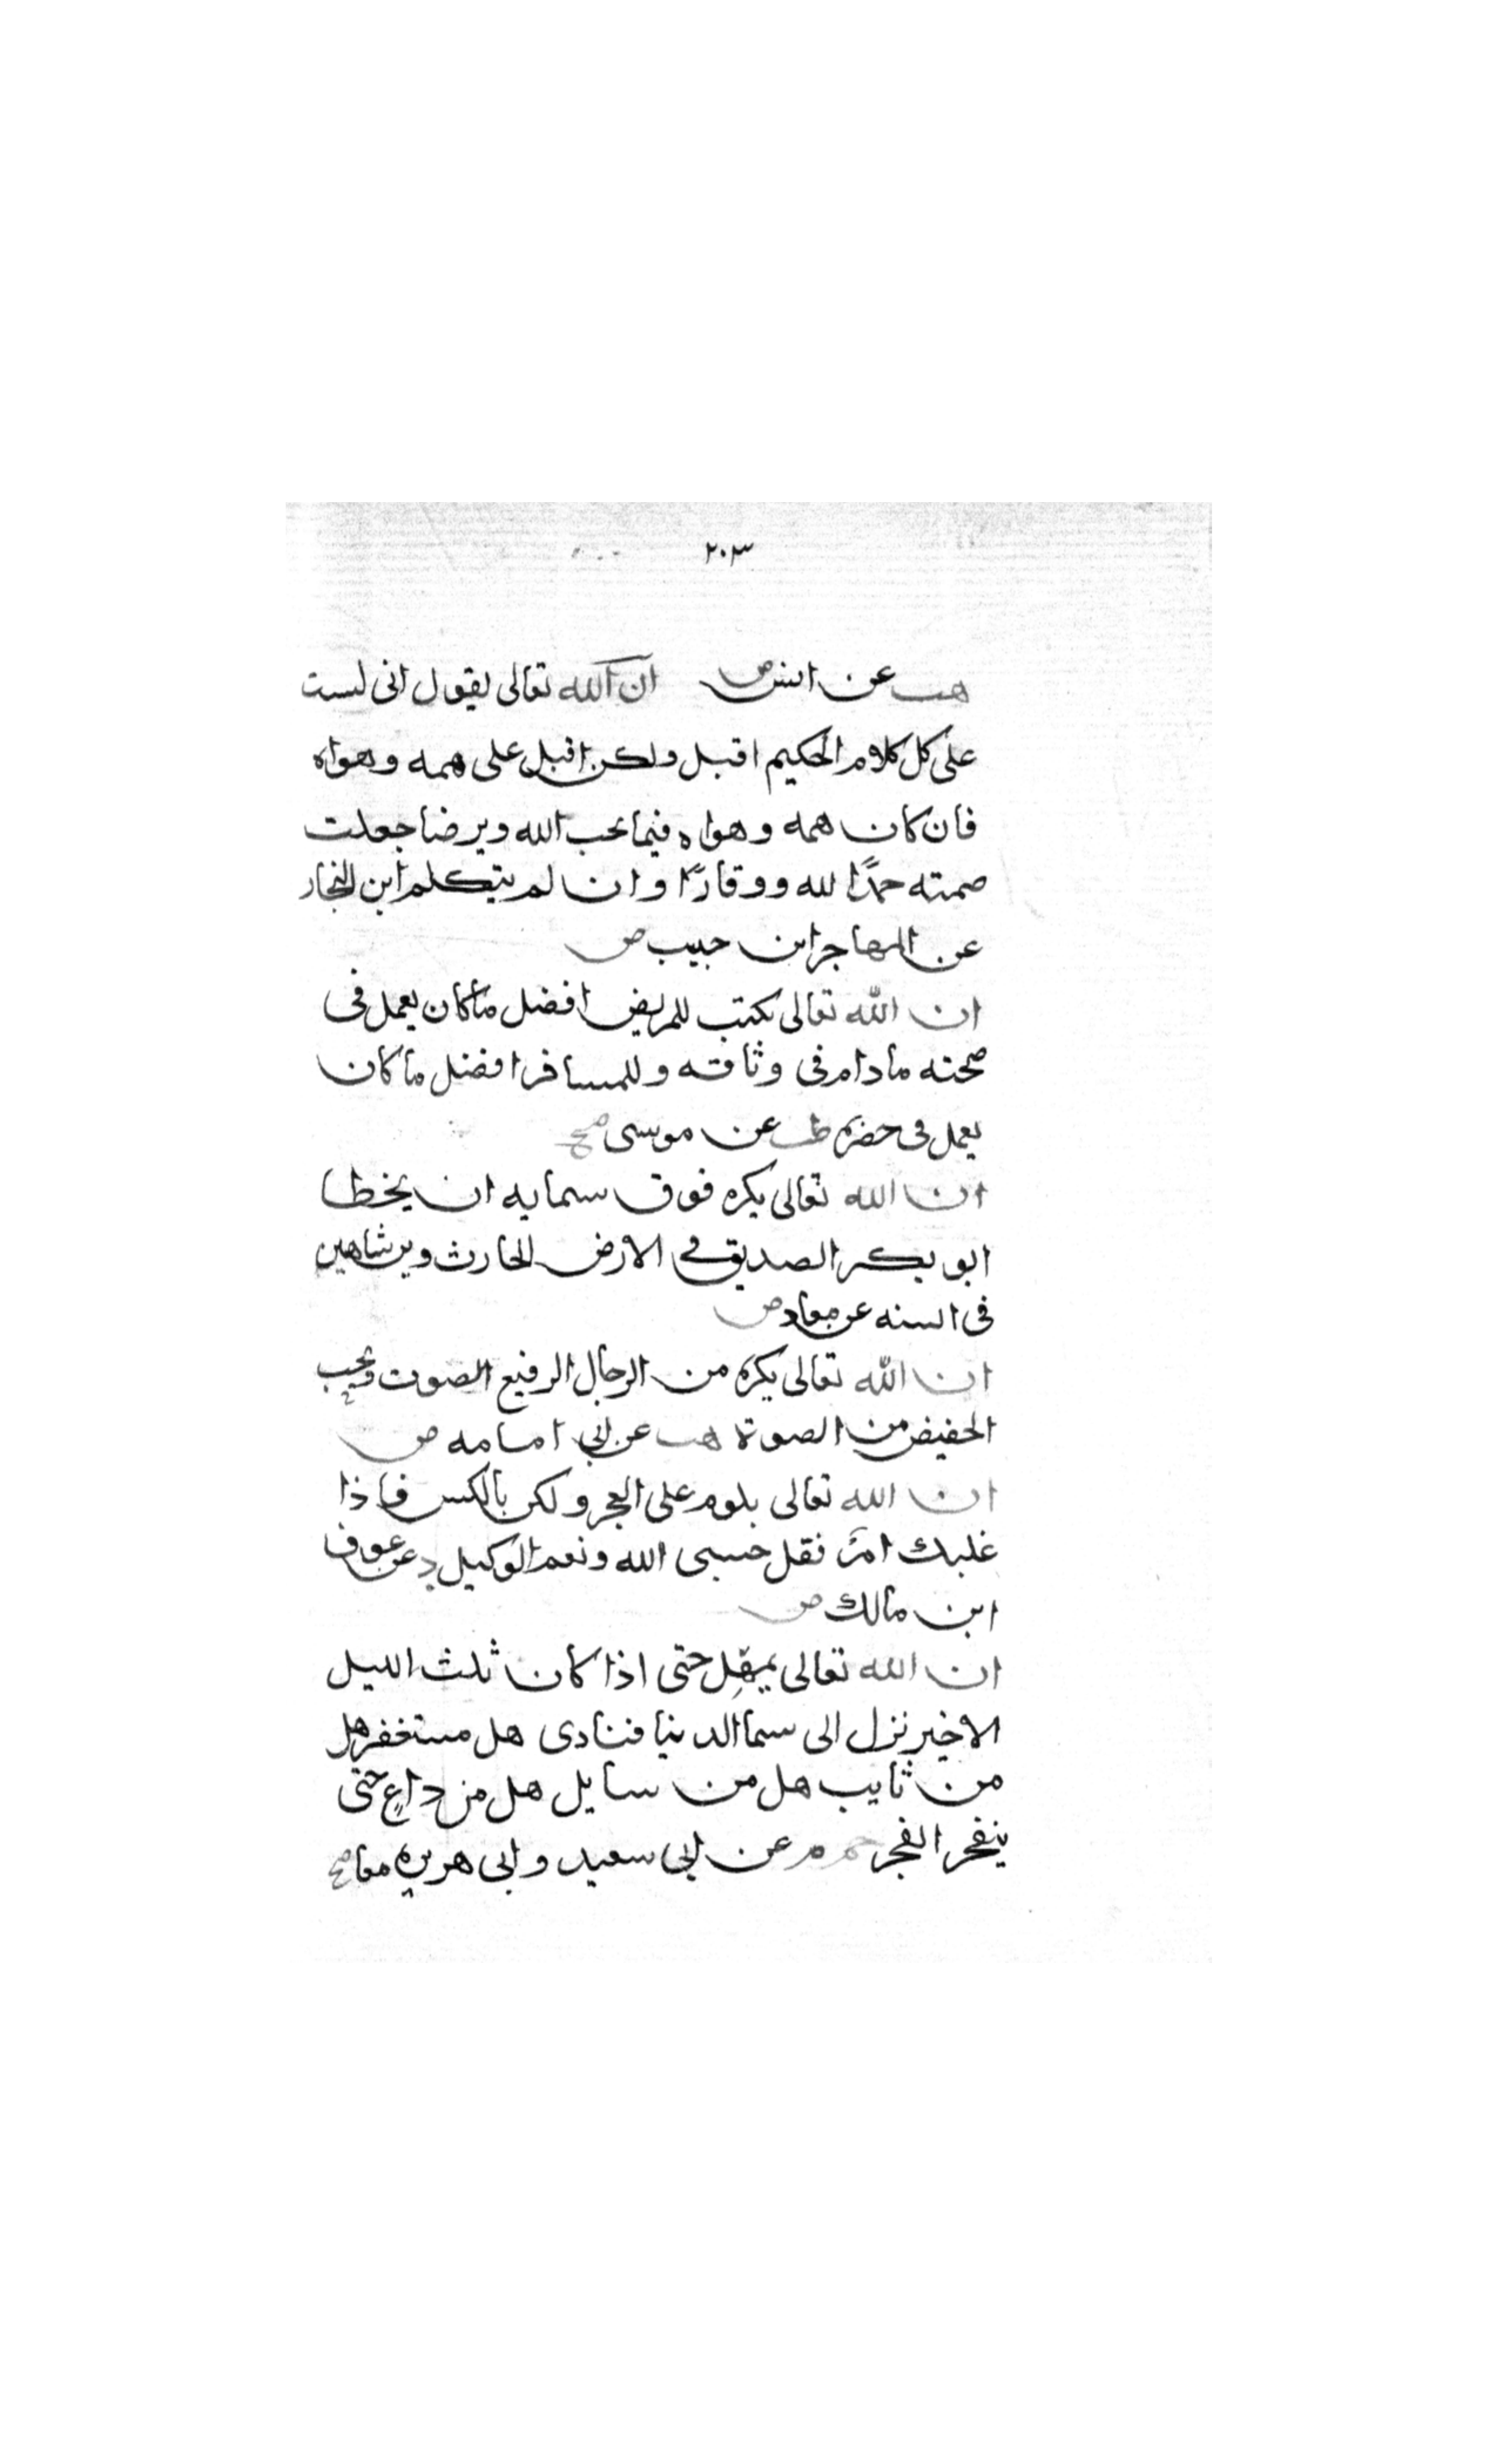 ٢٠٣
هب عن انس ض ان الله تعالى يقول انى لست
على كل كلام الحكيم اقبل ولكن اقبل على همه وهواه
فان كان همه وهواه فيما يحب الله ويرضا جعلت
صمته حمدًا لله ووقارًا وان لم يتكلم ابن النجار
عن المهاجر ابن حبيب ض
ان الله تعالى يكتب للمريض افضل ما كان يعمل فى
صحته مادام فى وثاقه وللمسافر افضل ما كان
يعمل فى حضره طب عن موسى صح
ان الله تعالى يكره فوق سمايه ان يخطا
ابو بكر الصديق في الارض الحارث وبن شاهين
فى السنه عن معاد ض
ان الله تعالى يكره من الرجال الرفيع الصوت ويحب
الخفيض من الصوة هب عن ابى امامه ض
ان الله تعالى يلوم على العجز ولكن بالكيس فاذا
غلبك امرٌ نقل حسبى الله ونعم الوكيل د عن عوف
ابن مالك ض
ان الله تعالى يمهل حتى اذا كان ثلث الليل
الاخير نزل الى سما الدنيا فنادى هل مستغفر هل
من ثايب هل من سايل هل من داعٍ حتى
ينفجر الفجر حم م عن ابى سعيد وابى هريره معا صح